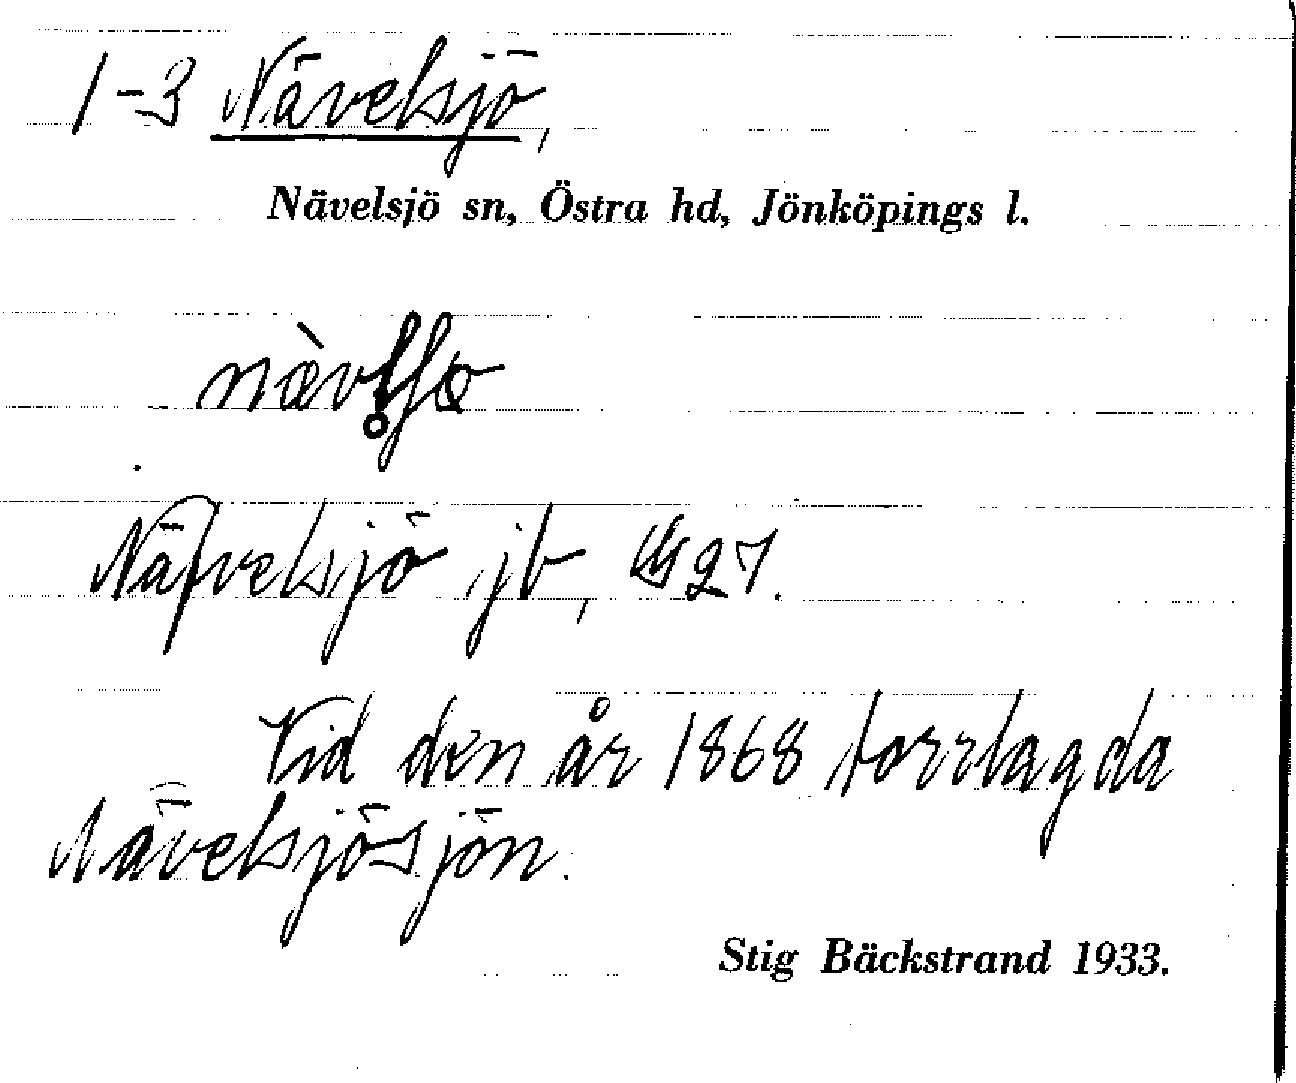 1-3 Nävelsjö,
Nävelsjö sn, Östra hd, Jönköpings l.
Näfvelsjö jb, 27.
Vid den år 1868 torrlagda
Nävelsjösjön.
Stig Bäckstrand 1933.